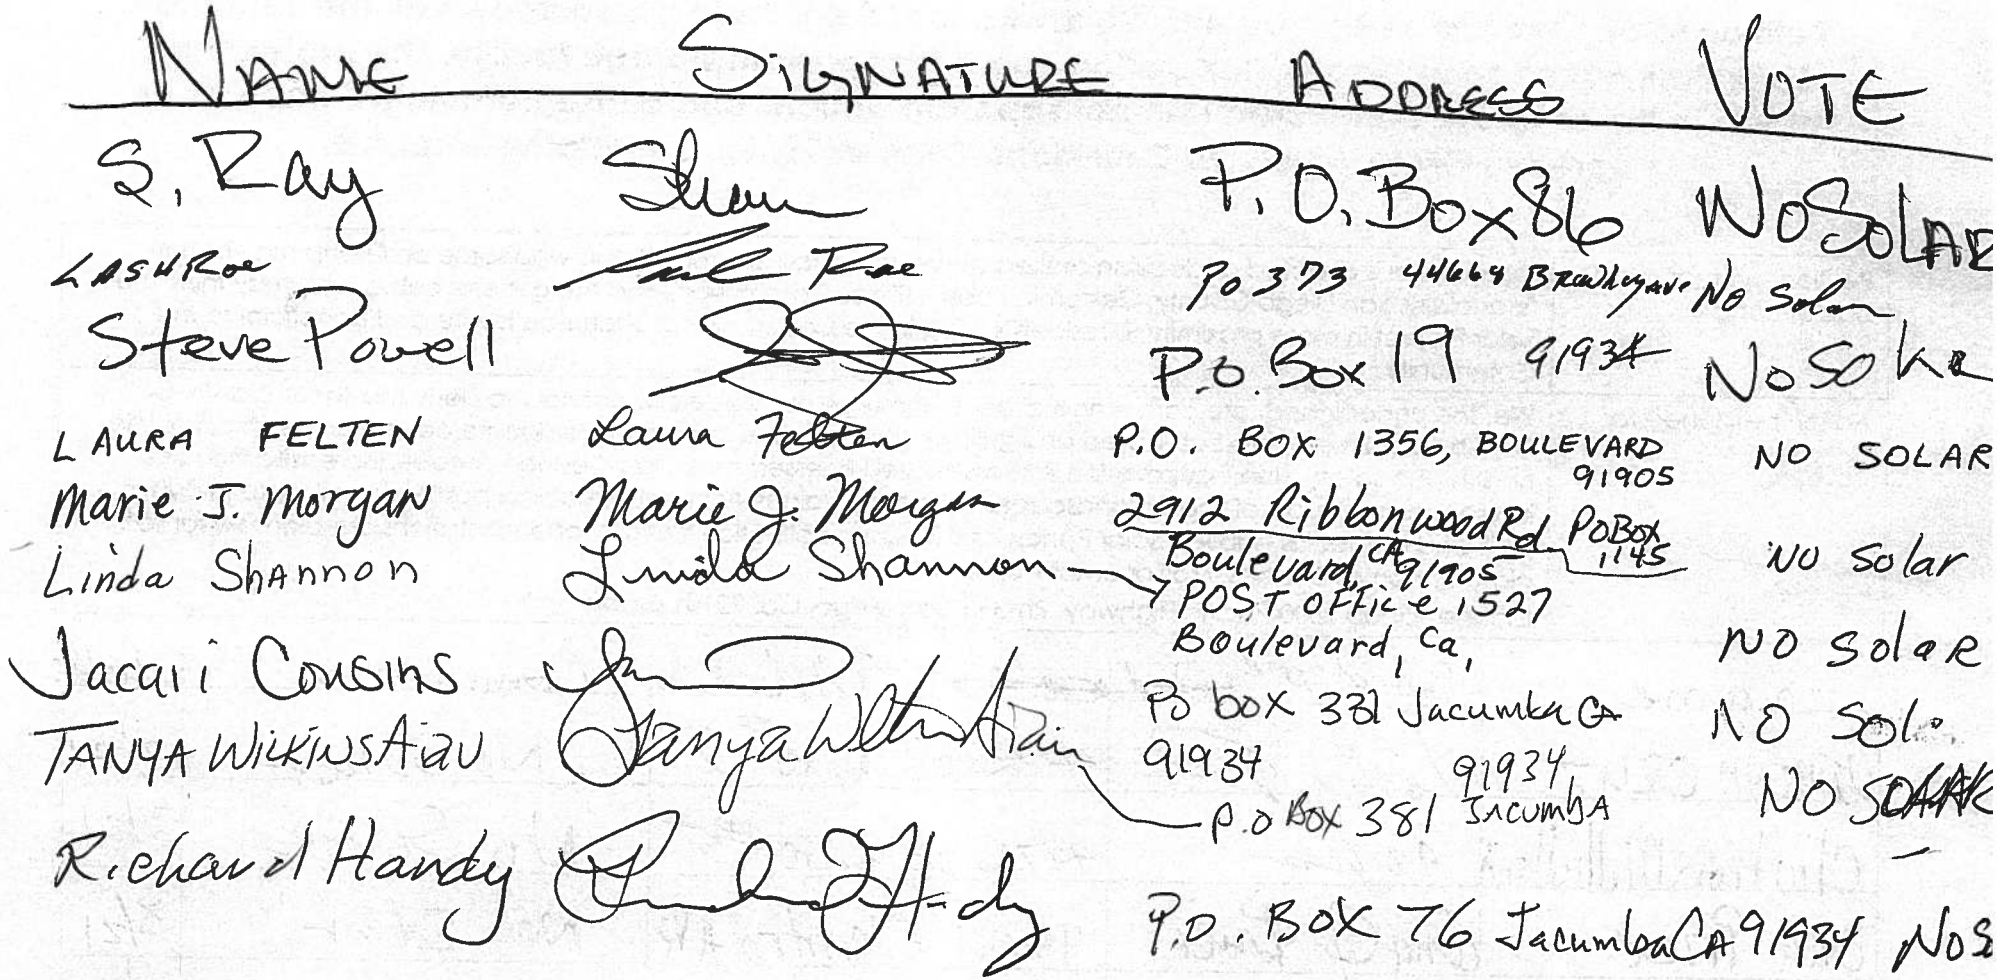 NAME SIGNATURE ADDRESS VOTE
S. Ray P.O. Box 86 No SOLAR
LASH Roe Roe Po 373 44664 No Solar
Steve Powell P.O. Box 19 91934 No So
LAURA FELTEN Laura Felten P.O. BOX 1356, BOULEVARD NO SOLAR
91905
Marie J. Morgan Marie J. Morgan 2912 Ribbonwood Rd PO Box
1145
Boulevard, CA 91905 NO Solar
Linda Shannon Linda Shannon POST OFFice 1527
Boulevard, Ca, NO SolaR
Jacari Cousins Po box 331 Jacumba CA NO Sol
91934
TANYA WilkinsAiau Tanya 91934 NO
P.O Box 381 JacumbA
Richard Handy P.O. BOX 76 Jacumba CA 91934 No S